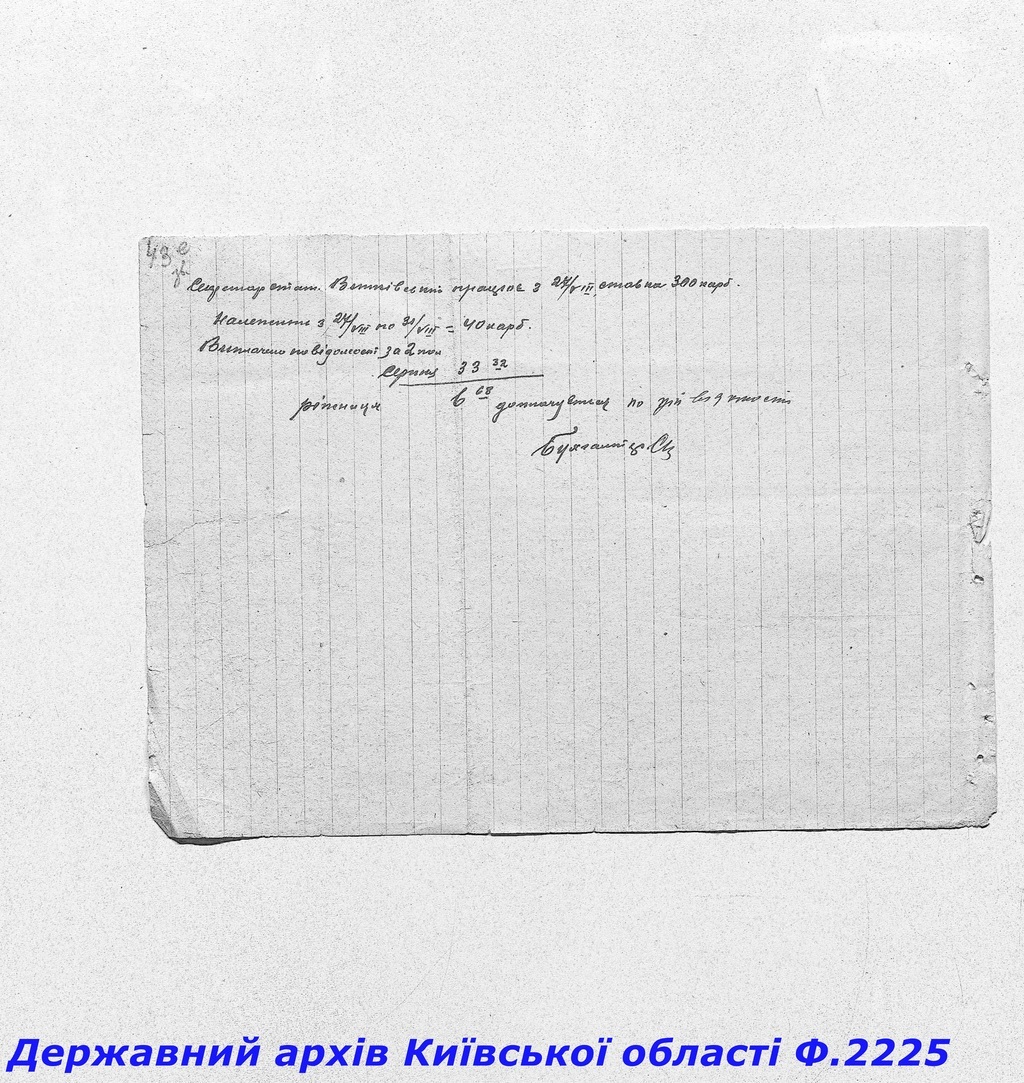 43 е
зв
Секретар стат. Витківський працює з 27/VIII, ставка 300 карб.
Належить з 27/VIII по 31/VIII = 40 карб.
Виплачено по відомості за 2 пол
Серпня 33 32
ріжниця 6 68 доплачується по цій відомости
Бухгалтер
Державний архів Київської області Ф.2225